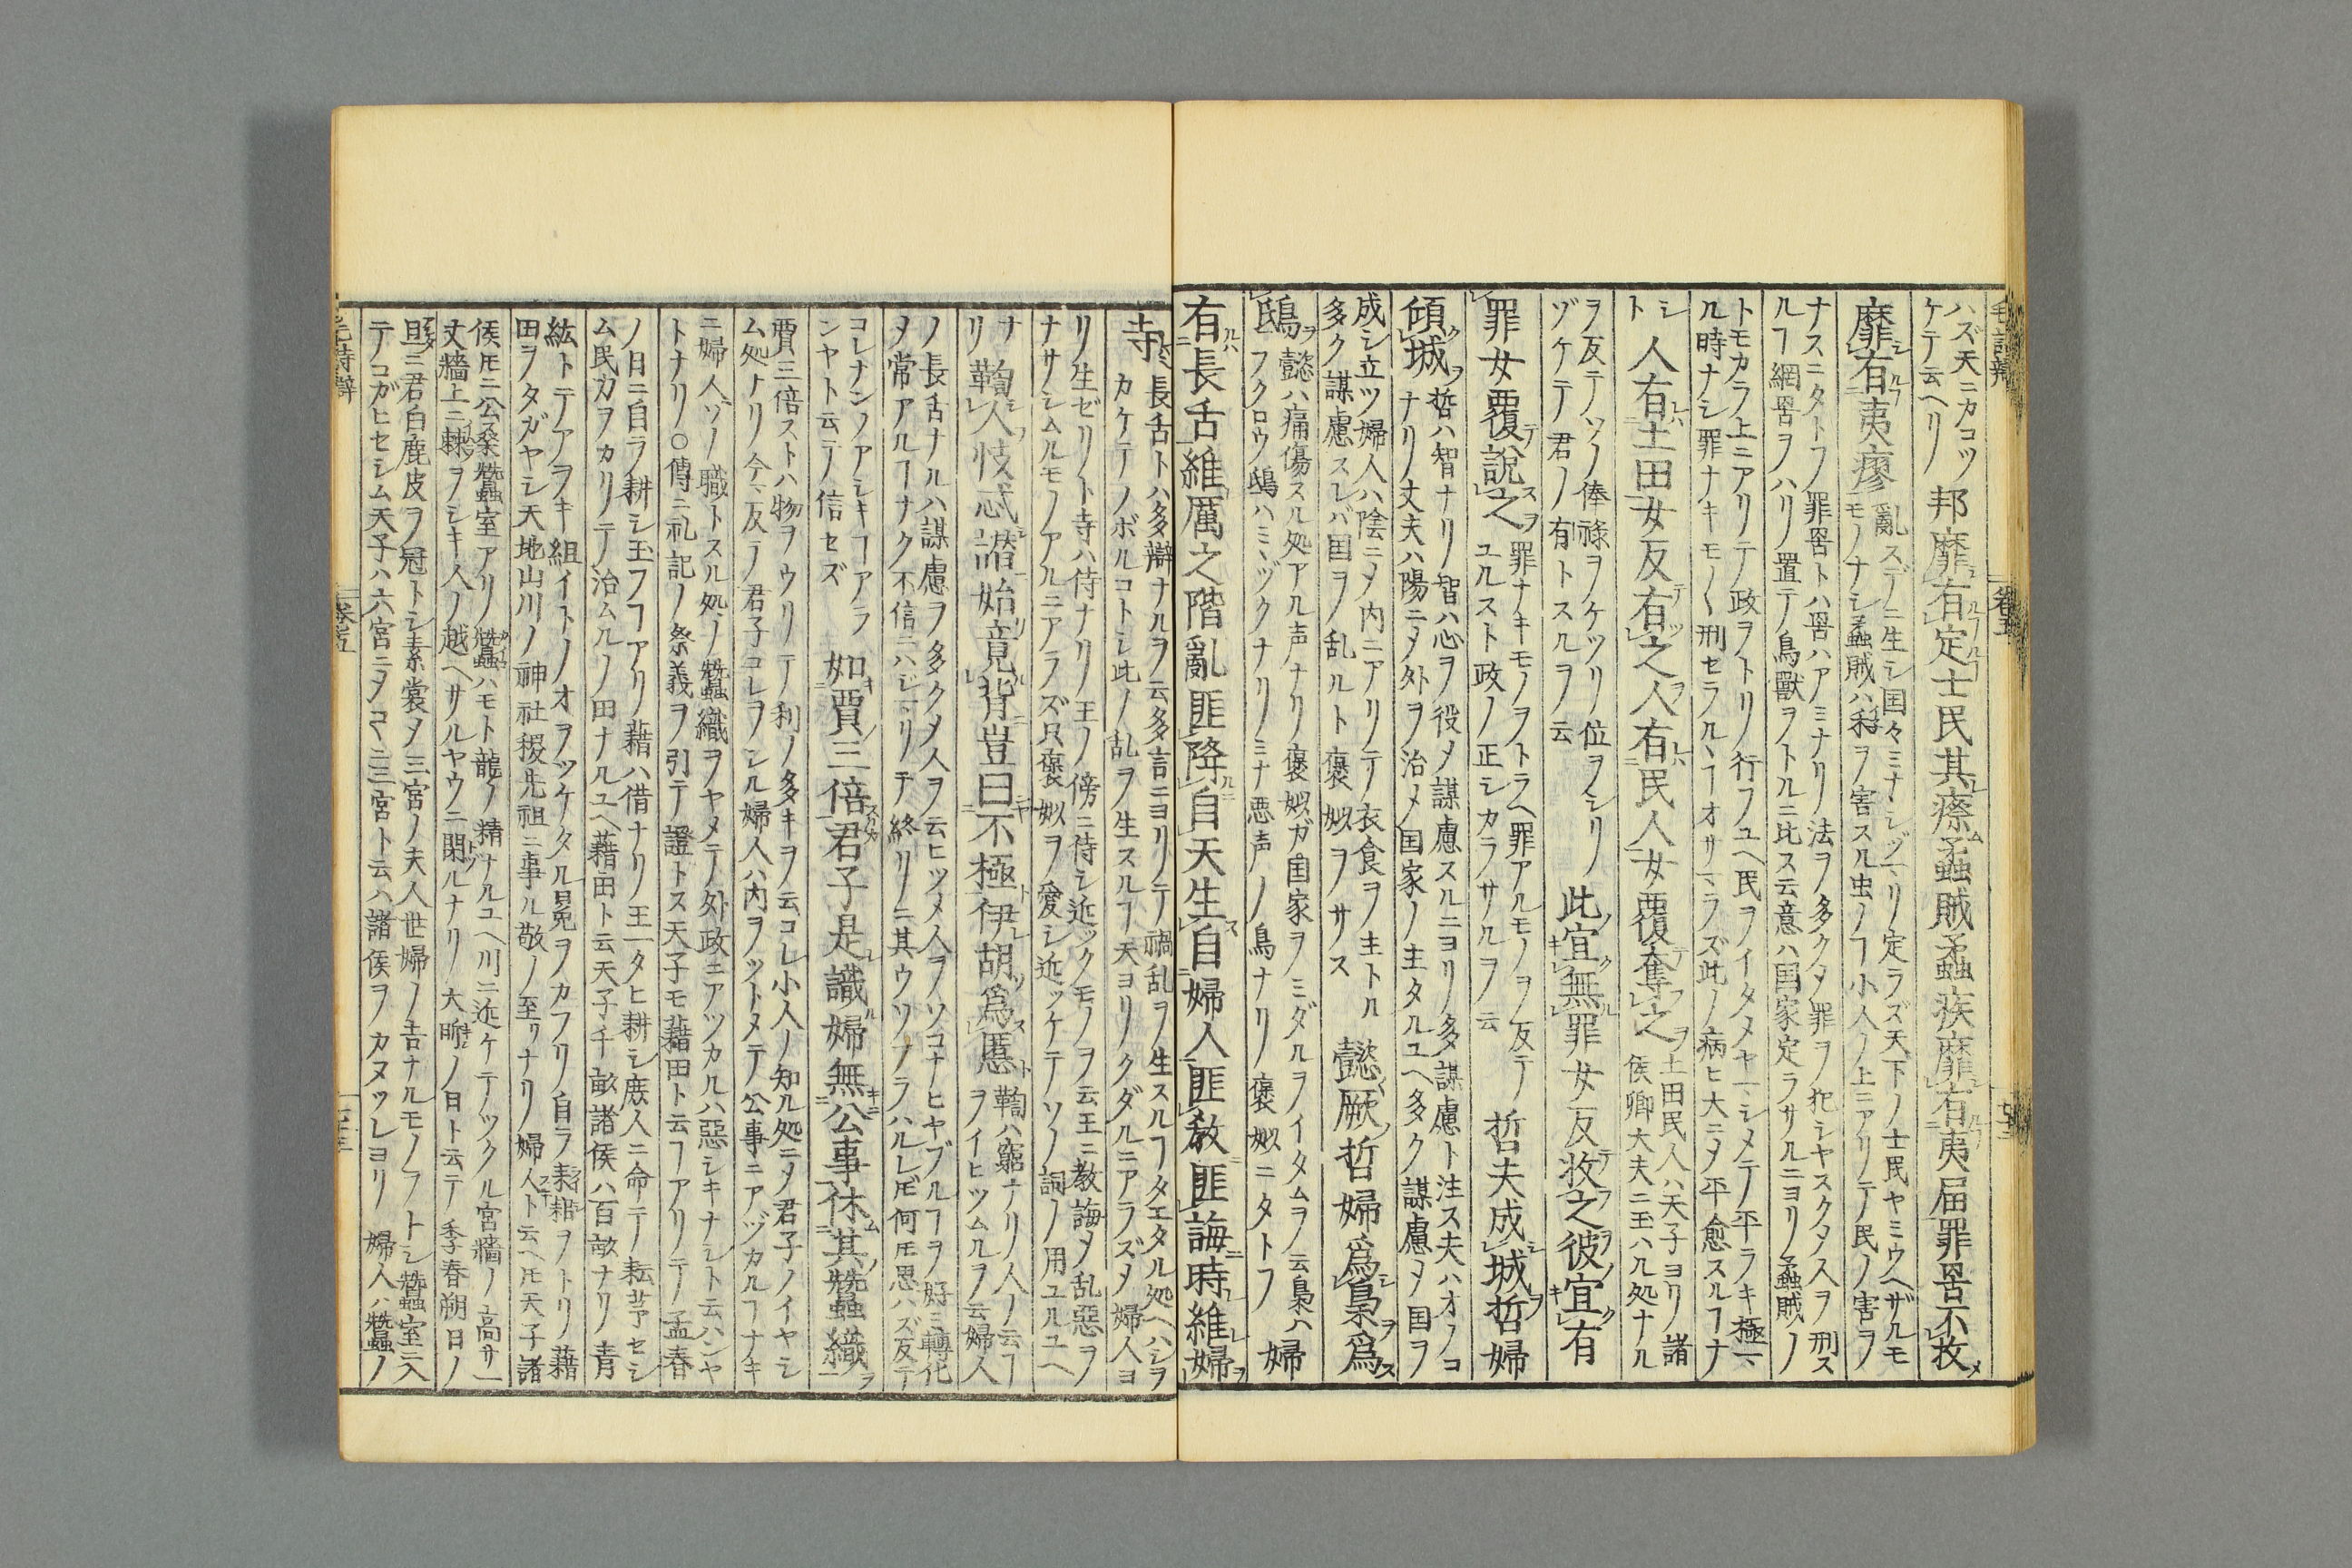 ハズ天ニカコツ
ケテ云ヘリ
邦靡有定士民其瘵蟊賊蟊疾靡有夷届罪罟不收
靡有夷瘳
亂スデニ生シ国々ミナシヅマリ定ラズ天下ノ士民ヤミウヘザルモ
モノナシ蟊賊ハ稼ヲ害スル虫ノ丁小人ノ上ニアリテ民ノ害ヲ
ナスニタトフ罪罟トハ罟ハアミナリ法ヲ多クメ罪ヲ犯シヤスクメ人ヲ刑ス
ル丁網罟ヲハリ置テ鳥獸ヲトルニ比ス云意ハ国家定ラサルニヨリ蟊賊ノ
トモカラ上ニアリテ政ヲトリ行フユヘ民ヲイタメヤマシメテ平ラキ極マ
ル時ナシ罪ナキモノ刑セラルヽ丁オサマラズ此ノ病ヒ大ニメ平愈スル丁ナ
シ
ト
人有土田女反有之人有民人女覆奪之
土田民人ハ天子ヨリ諸
侯卿大夫ニ玉ハル処ナル
ヲ反テソノ俸禄ヲケツリ位ヲシリ
ゾケテ君ノ有トスルヲ云
此宜無罪女反收之彼宜有
罪女覆說之
罪ナキモノヲトラヘ罪アルモノヲ反テ
ユルスト政ノ正シカラサルヲ云
哲夫成城哲婦
傾城
哲ハ智ナリ智ハ心ヲ役メ謀慮スルニヨリ多謀慮ト注ス夫ハオノコ
ナリ丈夫ハ陽ニメ外ヲ治メ国家ノ主タルユヘ多ク謀慮メ国ヲ
成シ立ツ婦人ハ陰ニメ内ニアリテ衣食ヲ主トル
多ク謀慮スレバ国ヲ乱ルト褒姒ヲサス
懿厥哲婦爲梟爲
鴟
懿ハ痛傷スル処アル声ナリ褒姒ガ国家ヲミダルヲイタムヲ云梟ハ
フクロウ鴟ハミヽヅクナリミナ悪声ノ鳥ナリ褒姒ニタトフ
婦
有長舌維厲之階亂匪降自天生自婦人匪敎匪誨時維婦
寺
長舌トハ多辯ナルヲ云多言ニヨリテ禍乱ヲ生スル丁タエタル処ヘハシヲ
カケテノボルコトシ此ノ乱ヲ生スル丁天ヨリクダルニアラズメ婦人ヨ
リ生ゼリト寺ハ侍ナリ王ノ傍ニ侍シ近ツクモノヲ云王ニ教誨メ乱惡ヲ
ナサシムルモノアルニアラズ只褒姒ヲ愛シ近ッケテソノ詞ノ用ユルユヘ
ナ
リ
鞫人忮忒譖始竟背豈曰不極伊胡爲慝
鞫ハ窮ナリ人ノ云丁
ヲイヒツムルヲ云婦人
ノ長舌ナルハ謀慮ヲ多クメ人ヲ云ヒツメ人ヲソコナヒヤブル丁ヲ好ミ轉化
メ常アル丁ナク不信ニハジマリテ終リニ其ウソアラハルレ𪜈何𪜈思ハズ反テ
コレナンソアシキ丁アラ
ンヤト云テ信セズ
如賈三倍君子是識婦無公事休其蠶織
賈三倍ストハ物ヲウリテ利ノ多キヲ云コレ小人ノ知ル処ニメ君子ノイヤシ
ム処ナリ今マ反テ君子コレヲシル婦人ハ内ヲツトメテ公事ニアヅカル丁ナキ
ニ婦人ソノ職トスル処ノ蠶織ヲヤメテ外政ニアツカルハ惡シキナシト云ハンヤ
トナリ○傳ニ礼記ノ祭義ヲ引テ證トス天子モ藉田ト云丁アリテ孟春
ノ日ニ自ラ耕シ玉フ丁アリ藉ハ借ナリ王一タヒ耕シ庶人ニ命テ耘芓セシ
ム民力ヲカリテ治ムルノ田ナルユヘ藉田ト云天子千畝諸侯ハ百畝ナリ青
紘トテアヲキ組イトノオヲツケタル冕ヲカフリ自ラ耒耜ヲトリ藉
田ヲタガヤシ天地山川ノ神社稷先祖ニ事ル敬ノ至リナリ婦人ト云ヘ𪜈天子諸
侯𪜈ニ公桑蠶室アリ蠶ハモト龍ノ精ナルユヘ川ニ近ケテツクル宮牆ノ高サ一
丈牆上ニ棘ヲシキ人ノ越ヘサルヤウニ閑ルナリ大昕ノ日ト云テ季春朔日ノ
旦ニ君白鹿皮ヲ冠トシ素裳メ三宮ノ夫人世婦ノ吉ナルモノフトシ蠶室ニ入
テコガヒセシム天子ハ六宮ニメコヽニ三宮ト云ハ諸侯ヲカヌッレヨリ婦人ハ蠶ノ